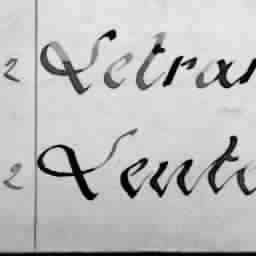 2 Letran
2 Lente